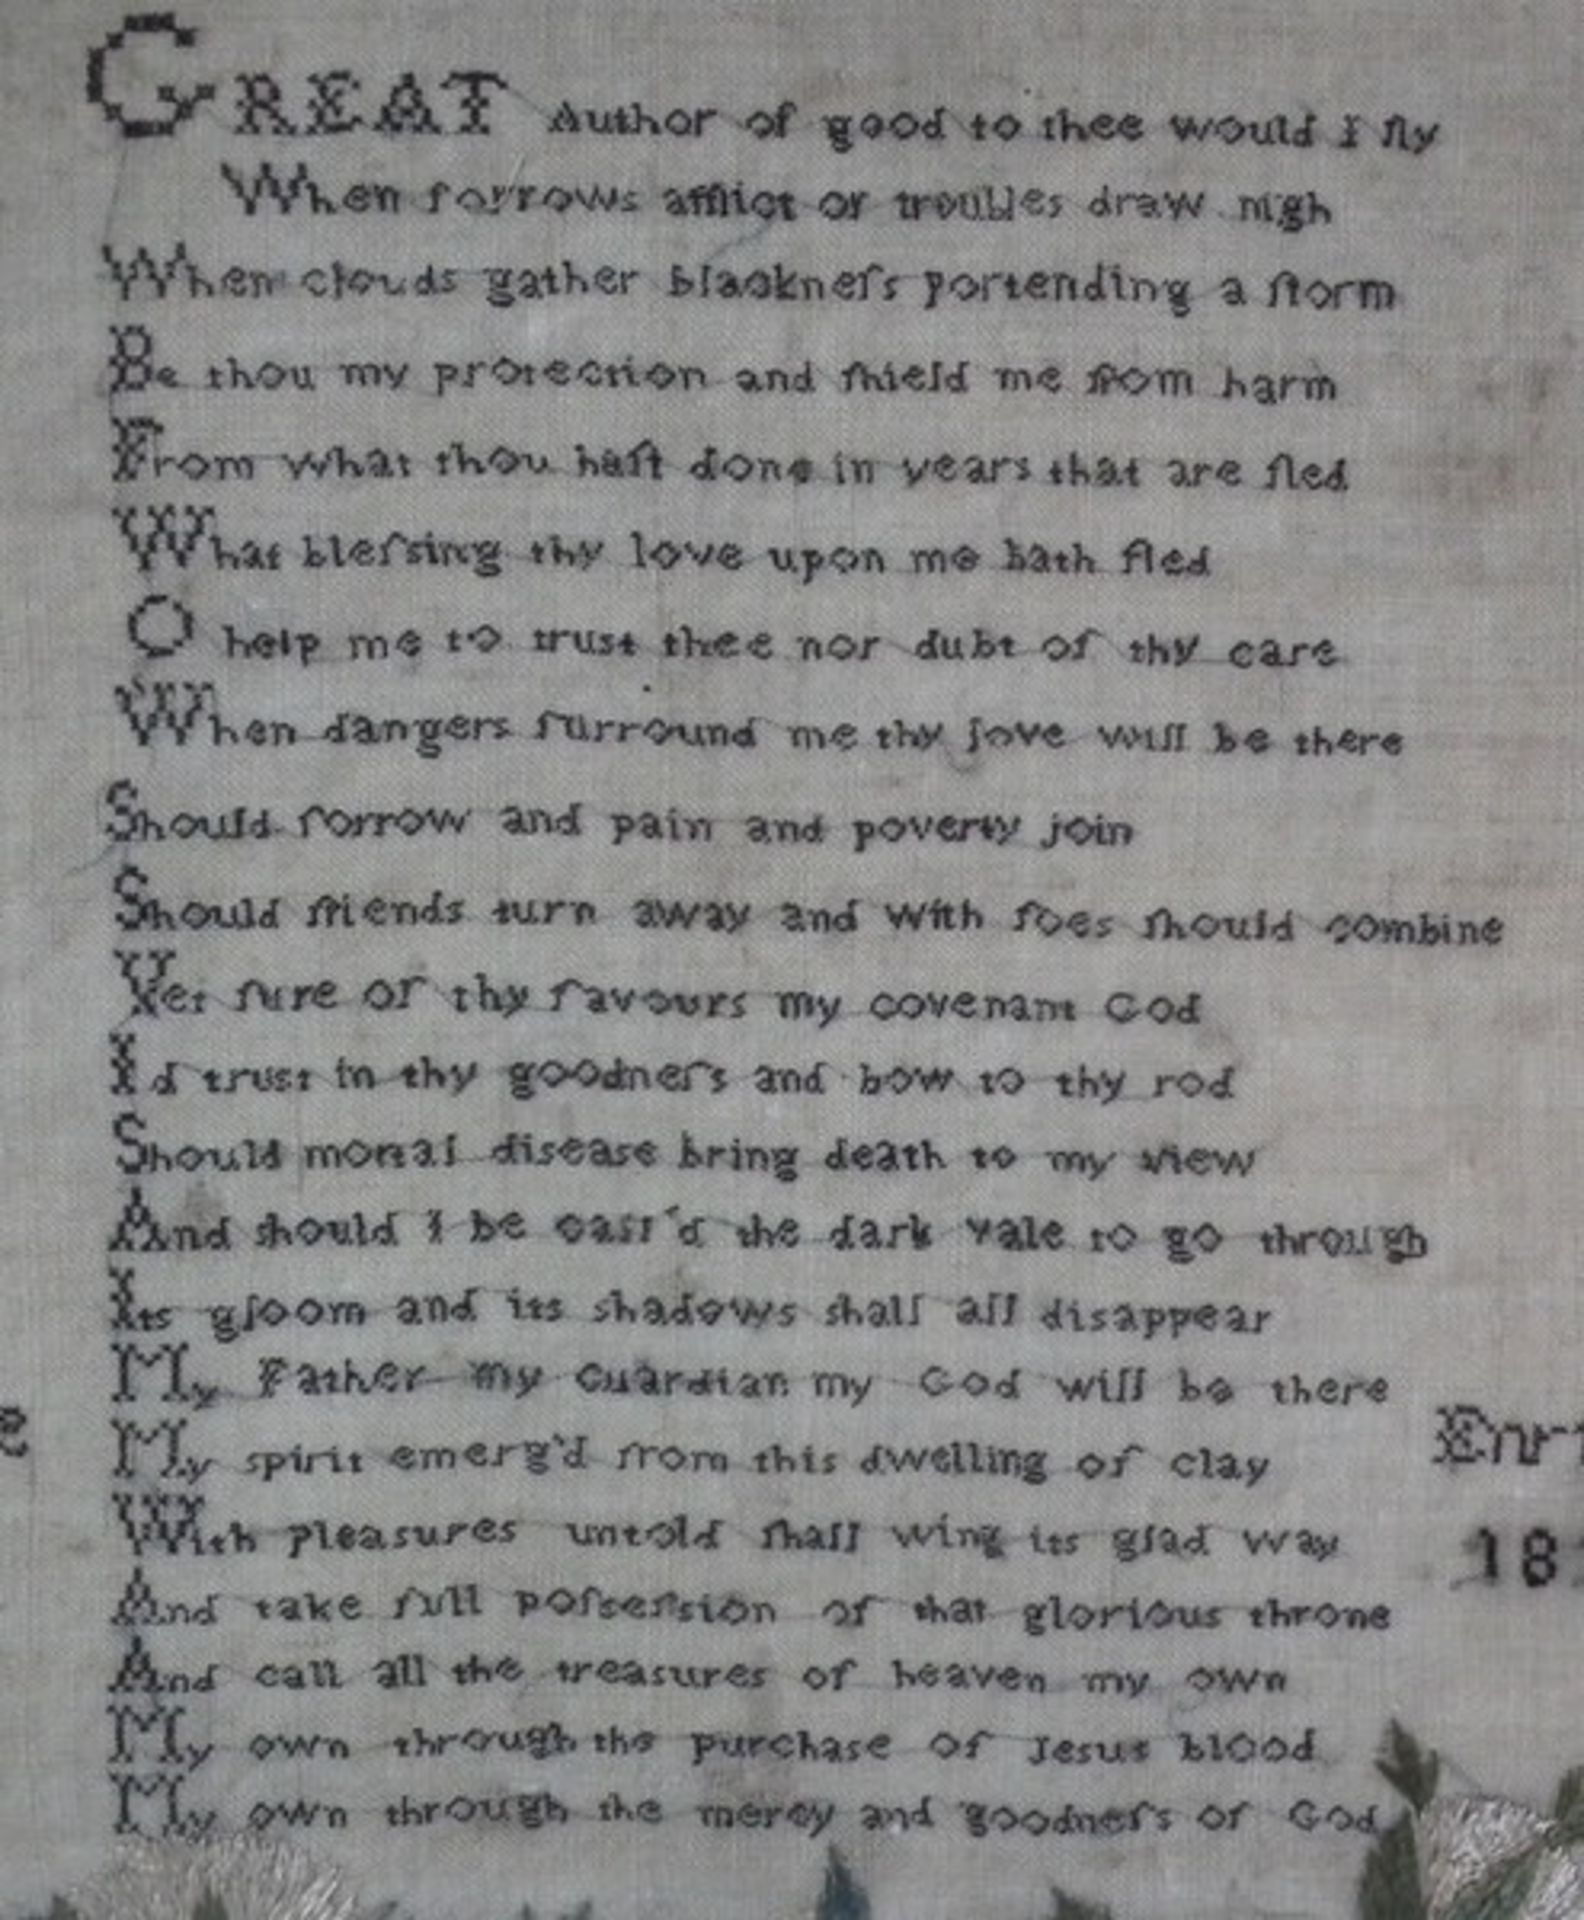 GREAT Author of good to thee would I fly
When ſorrows afflict or troubles draw nigh
When clouds gather blackneſs portending a ſtorm
Be thou my protection and ſhield me from harm
From what thou haſt done in years that are fled
What bleſsing thy love upon me hath fled
O help me to trust thee nor dubt of thy care
When dangers ſurround me thy love will be there
Should ſorrow and pain and poverty join
Should friends turn away and with foes ſhould combine
Yet ſure of thy favours my covenant God
Id trust in thy goodneſs and bow to thy rod
Should mortal disease bring death to my view
And should I be call'd the dark vale to go through
Its gloom and its shadows shall all disappear
My Father my Guardian my God will be there
My spirit emerg'd from this dwelling of clay
With pleasures untold ſhall wing its glad way
And take full poſseſsion of that glorious throne
And call all the treasures of heaven my own
My own through the purchase of Jesus blood
My own through the mercy and goodneſs of God
e
18